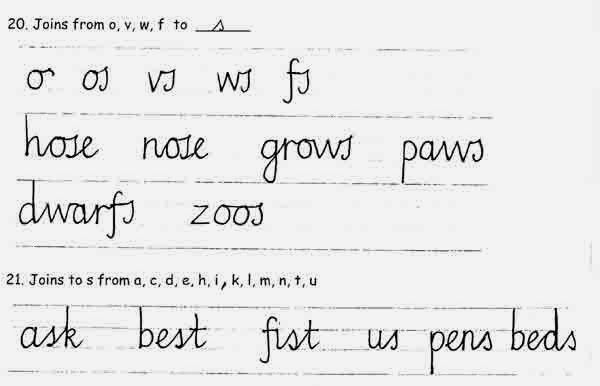 20. Joins from o, v, w, f to s
o os vs ws fs
hose nose grows paws
dwarfs zoos
21. Joins to s from a, c, d, e, h, i, k, l, m, n, t, u
ask best fist us pens beds